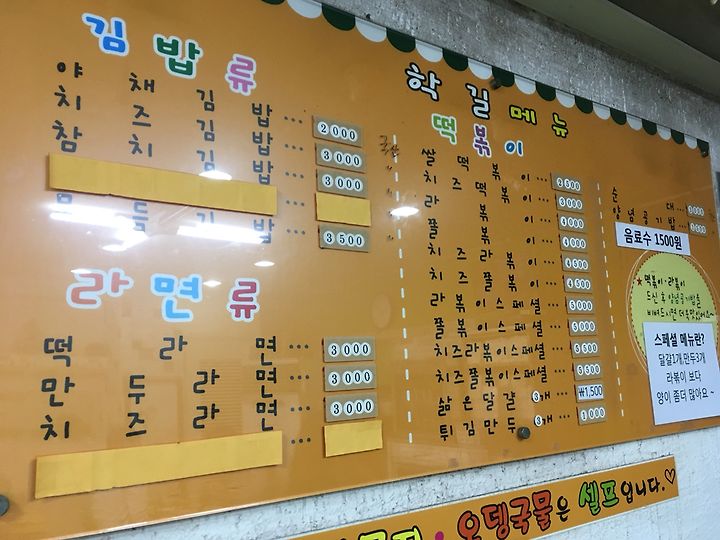 김밥류
야채김밥 ... 2000
치즈김밥 ... 3000
참치김밥 ... 3000
듬김밥 ... 3500
라면류
떡라면 ... 3000
만두라면 ... 3000
치즈라면 ... 3000
학길메뉴
떡볶이
쌀떡볶이 ...
치즈떡볶이 ... 3000
라볶이 ... 4000
쫄볶이 ... 4000
치즈라볶이 ... 4500
치즈쫄볶이 ... 4500
라볶이스페셜 ... 5000
쫄볶이스페셜 ... 5000
치즈라볶이스페셜 ... 5500
치즈쫄볶이스페셜 ... 5500
삶은달걀 3개 ... ₩1,500
튀김만두 3개 ... 1000
순대 ... 3000
양념공기밥 ...
음료수 1500원
★떡볶이·라볶이
드신 후 양념공기밥을
비벼드시면 더욱맛있어요~
스페셜 메뉴란?
달걀1개,만두3개
라볶이 보다
양이 좀더 많아요 ~
· 오뎅국물은 셀프입니다.♡